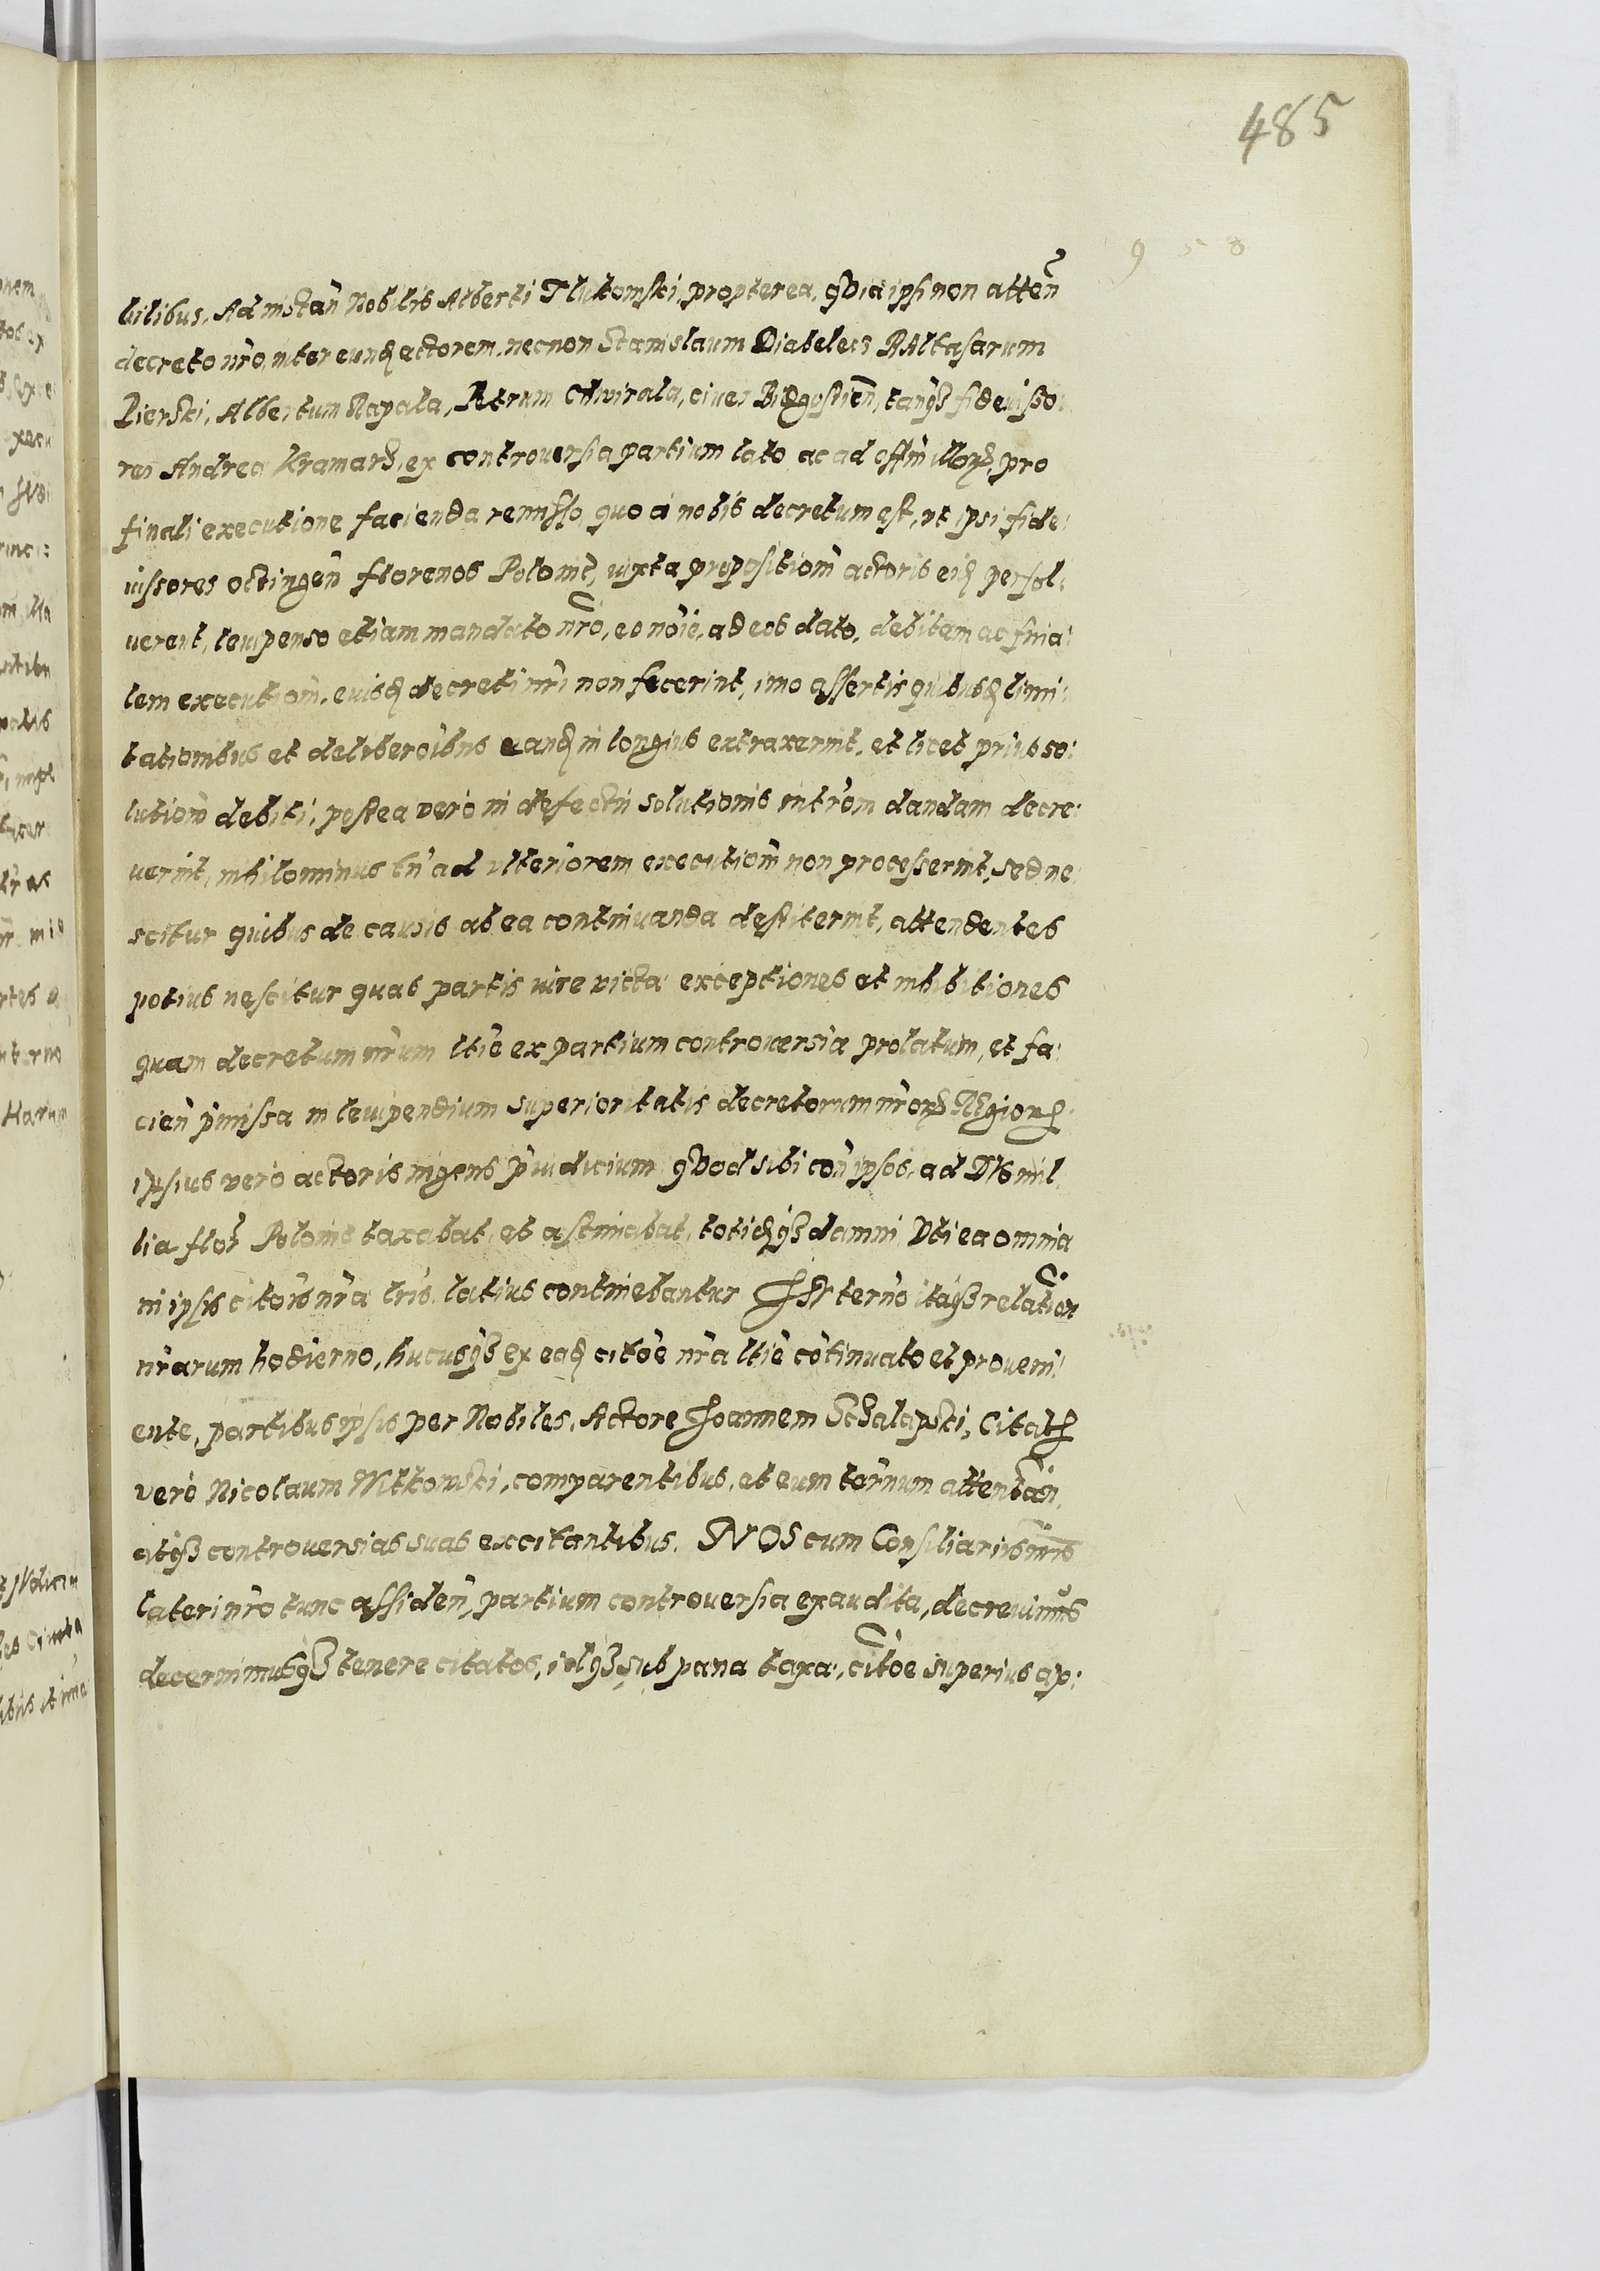 485
9 5 8
bilibus. Ad instan̄ Nobilis Alberti Tlukomski, propterea, qvia ipsi non atten̄
decreto nr̄o, inter eundē actorem, necnon Stanislaum Diabelecz Baltasarum
Pierski, Albertum Rapala, Petrum Chwirala, cives Bidgostien̄, tanqȝ fideiusso
res Andrea Kramarz, ex controuersia partium lato, ac ad offm̄ illorȝ, pro
finali executione facienda remisso, quo a nobis decretum est, vt ipsi fide:
iussores octingen̄ florenos Polonic̄, iuxta propositiom̄ actoris eidē persol:
uerent, leuipenso etiam mandato nr̄o, eo noīe, ad eos dato, debitam ac fina:
lem executiom̄, euisdē decreti nr̄i non fecerint, imo assertis quibusdē limi:
tationibus et deliberōibus eandē in longius extraxerint, et licet prius so:
lutiom̄ debiti, postea vero in defectū solutionis intrōm dandam decre:
uerint, nihilominus tn̄ ad vlteriorem executiom̄ non processerint, sed ne:
scitur quibus de causis ab ea continuanda destiterint, attendentes
potius nescitur quas partis iure victa: exceptiones et inhibitiones
quam decretum nr̄um ltīe ex partium controuersia prolatum, et fa:
cien̄ p̄missa in leuipendium superioritatis decretorum nr̄orȝ Regiorȝ
ipsius vero actoris ingens p̄iudicium qvod sibi con̄ ipsos, ad Dvo mil
lia flor̄ Polonic̄ taxabat, et astimabat, totidēqȝ damni Vti ea omnia
in ipsis citōis nr̄a lr̄is latius continebantur Inr termo itaqȝ relation
nr̄arum hodierno, hucusqȝ ex eadē citōe nr̄a ltīe cōtinuato et proueni:
ente, partibus ipsis per Nobiles, Actore Joannem Schalapski, Citatȝ
vero Nicolaum Witkowski, comparentibus, et eum tar̄num attentan̄
atqȝ controuersias suas excitantibus. NOS cum Consiliariis nr̄is
lateri nr̄o tunc assiden̄, partium controuersia exaudita, decreuimus
decernimusqȝ tenere citatos, idqȝ sub pana taxa:, citōe superius ap: